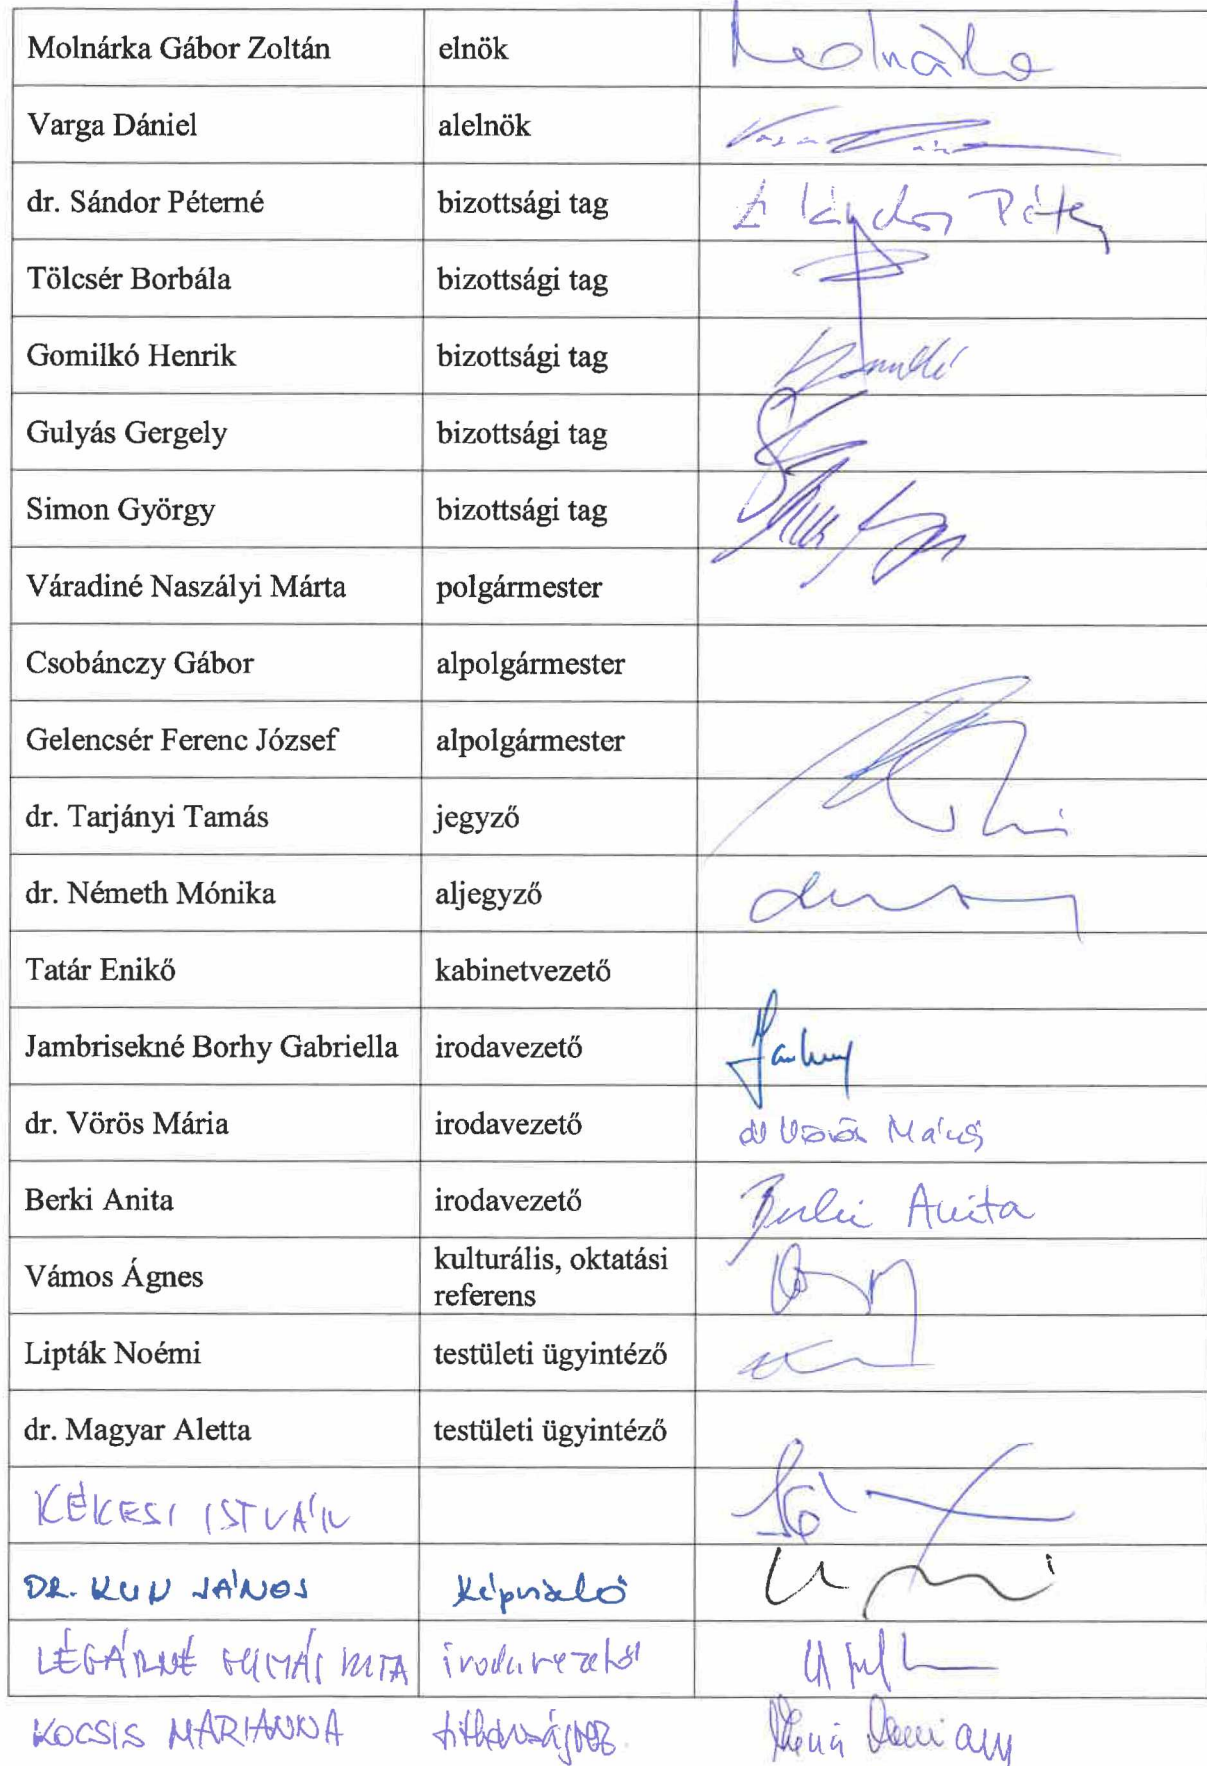 Molnárka Gábor Zoltán elnök Molnárka
Varga Dániel alelnök
dr. Sándor Péterné bizottsági tag
Tölcsér Borbála bizottsági tag
Gomilkó Henrik bizottsági tag
Gulyás Gergely bizottsági tag
Simon György bizottsági tag
Váradiné Naszályi Márta polgármester
Csobánczy Gábor alpolgármester
Gelencsér Ferenc József alpolgármester
dr. Tarjányi Tamás jegyző
dr. Németh Mónika aljegyző
Tatár Enikő kabinetvezető
Jambrisekné Borhy Gabriella irodavezető
dr. Vörös Mária irodavezető dr Vörös Mária
Berki Anita irodavezető Berki Anita
Vámos Ágnes kulturális, oktatási
referens
Lipták Noémi testületi ügyintéző
dr. Magyar Aletta testületi ügyintéző
KÉKESI ISTVÁN
DR. KUN JÁNOS képviselő
irodavezető
KOCSIS MARIANNA